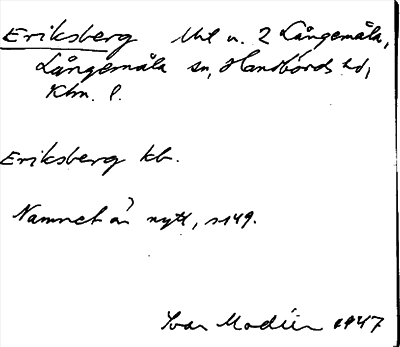 Eriksberg Utl u. 2 Långemåla,
Långemåla sn, Handbörds hd,
Klm. l.
Eriksberg kb.
Namnet är nytt, s149.
Ivar Modéer 1947